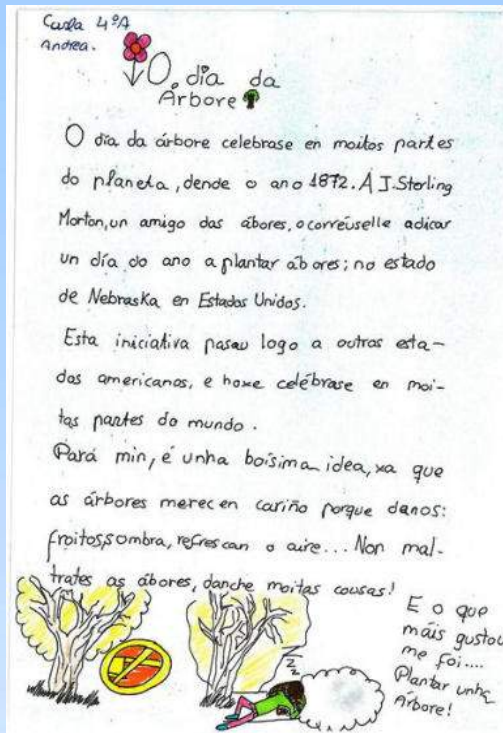 Carla 4ºA
Andrea.
O día da
Árbore
O día da árbore celebrase en moitos partes
do planeta, dende o ano 1872. A J. Sterling
Morton, un amigo das ábores, ocorreuselle adicar
un día do ano a plantar ábores; no estado
de Nebraska en Estados Unidos.
Esta iniciativa pasou logo a outros esta-
dos americanos, e hoxe celébrase en moi-
tas partes do mundo.
Pará min, é unha boísima idea, xa que
as árbores merecen cariño porque danos:
froitos, sombra, refrescan o aire... Non mal-
trates as ábores, danche moitas cousas!
E o que
máis gustou
me foi....
Plantar unha
Árbore!
zz